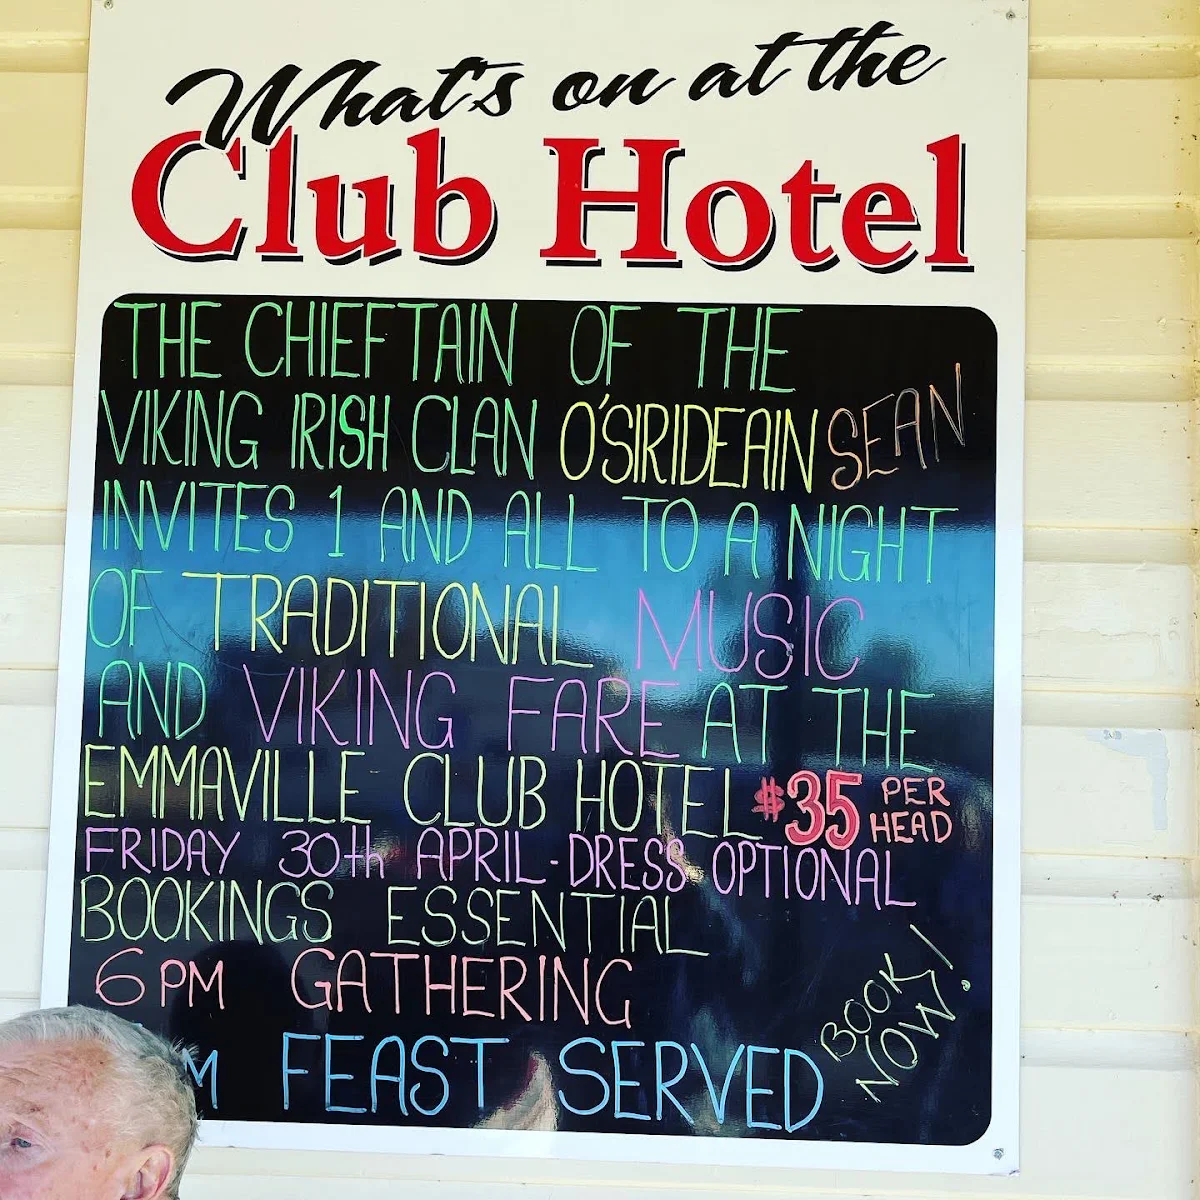 What's on at the
Club Hotel
THE CHIEFTAIN OF THE
VIKING IRISH CLAN O'SIRIDEAIN SEAN
INVITES 1 AND ALL TO A NIGHT
OF TRADITIONAL MUSIC
AND VIKING FARE AT THE
EMMAVILLE CLUB HOTEL $35 PER HEAD
FRIDAY 30th APRIL - DRESS OPTIONAL
BOOKINGS ESSENTIAL
6PM GATHERING
FEAST SERVED
BOOK
NOW!